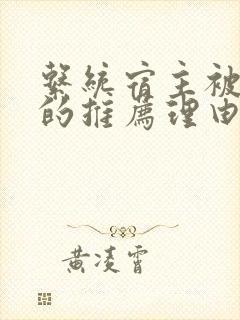 繫統宿主被
的推薦理由
黃凌霄